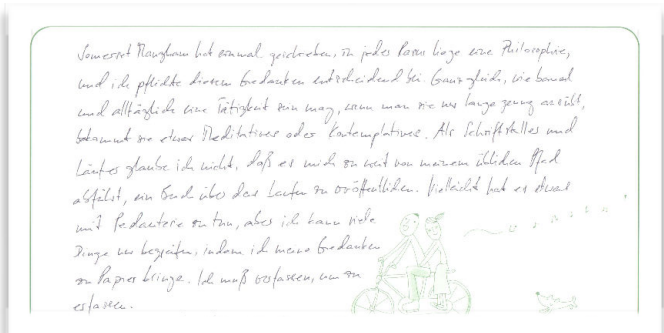 Somerset Maugham hat einmal geschrieben, in jedes Rasur liege eine Philosophie,
und ich pflichte diesem Gedanken entscheidend bei. Ganz gleich, wie banal
und alltäglich eine Tätigkeit sein mag, wenn man sie nur lange genug ausübt,
bekommt sie etwas Meditatives oder Kontemplatives. Als Schriftsteller und
Läufer glaube ich nicht, daß es mich zu weit von meinem üblichen Pfad
abführt, ein Buch über das Laufen zu veröffentlichen. Vielleicht hat es etwas
mit Pedanterie zu tun, aber ich kann viele
Dinge nur begreifen, indem ich meine Gedanken
zu Papier bringe. Ich muß verfassen, um zu
erfassen.